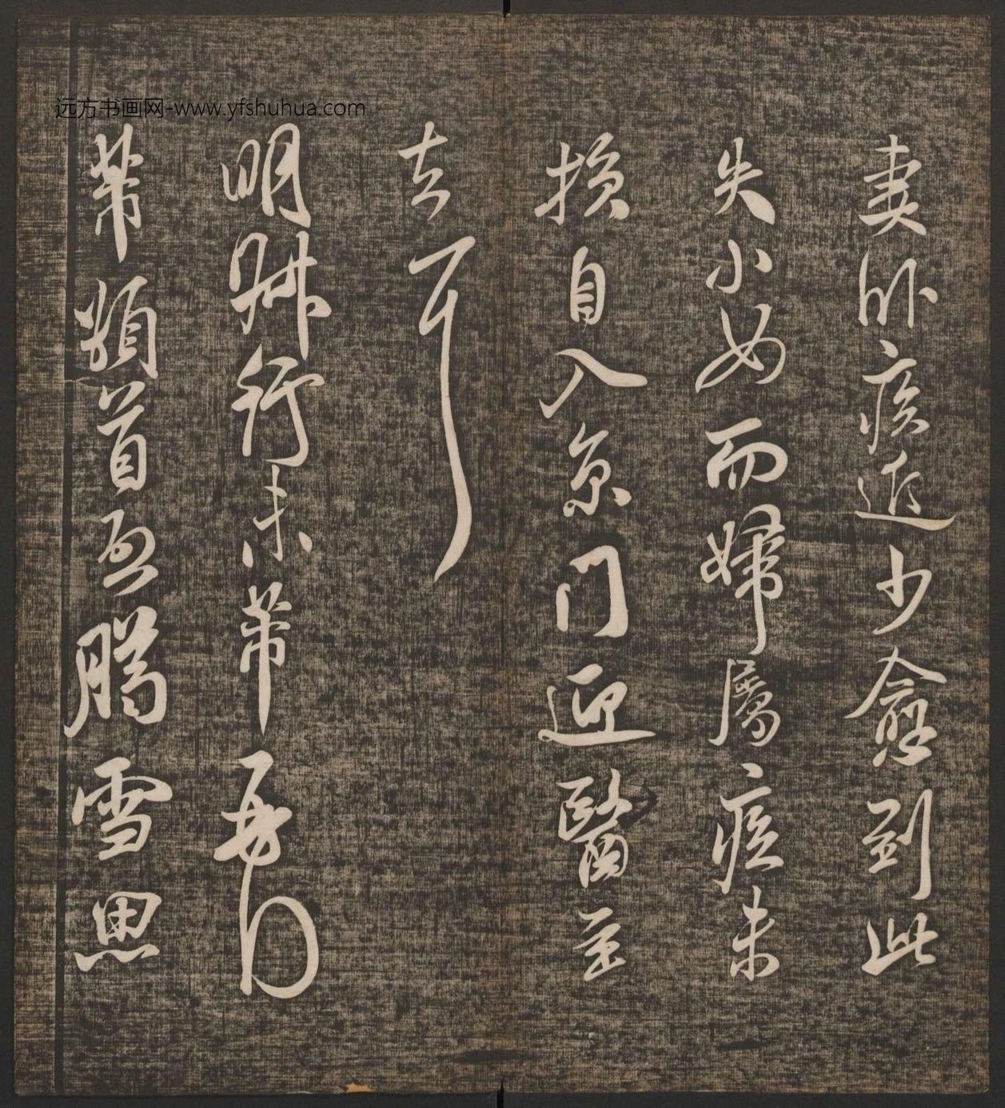 妻卧疾近少愈到此
失小女而婦屬疾未
損自入京門迎醫至
去耳
明叔行未芾
芾頓首雪思
远方书画网-www.yfshuhua.com